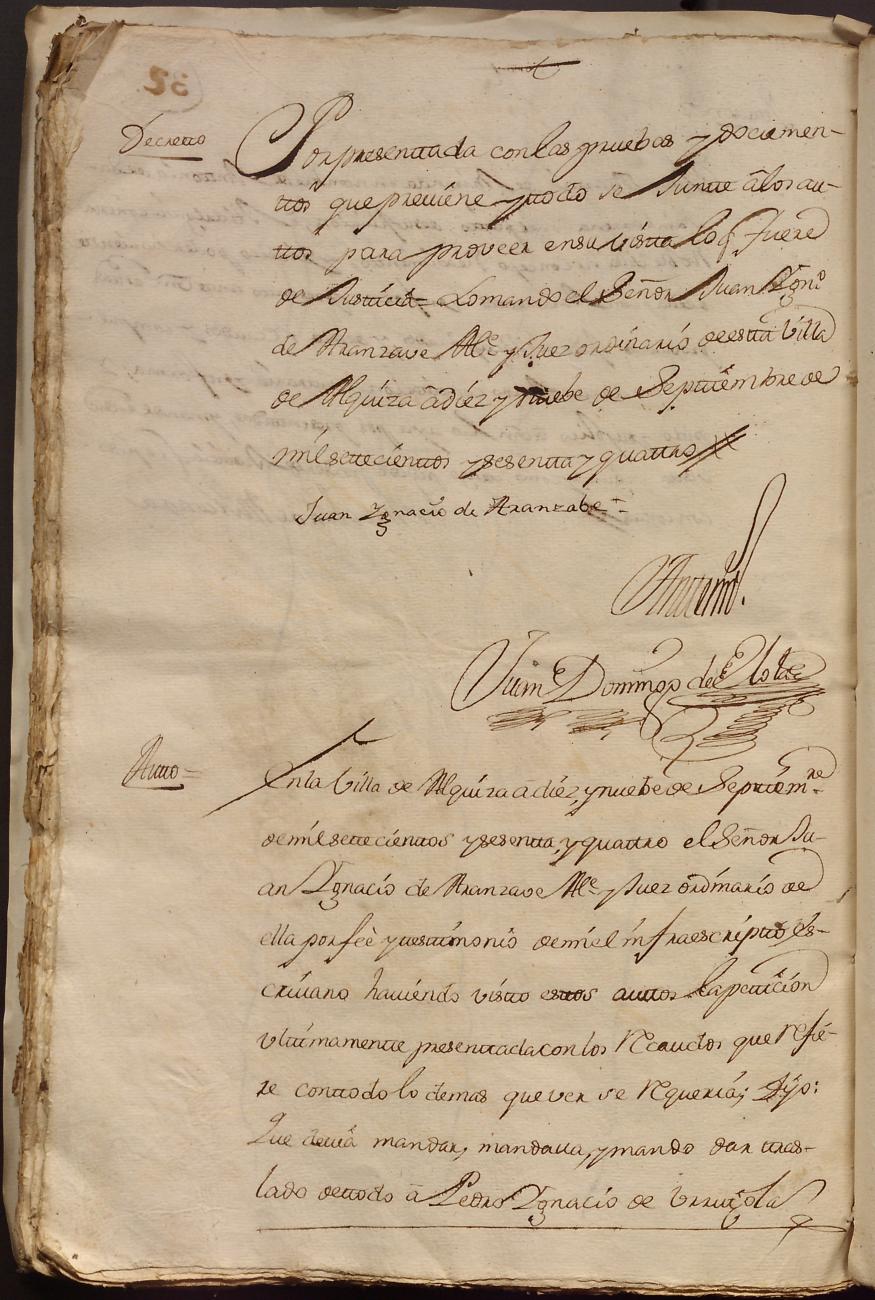 Decretto
Por presenttada con las pruebas y documen-
ttos que previene y ttodo se Juntte â los au-
ttos para proveer en su vistta lo q fuere
de Justticia= Lo mando el Señor Juan Ygn.º
de Aranzave Al.e y Juez ordinario de estta Villa
de Alquiza â diez y nuebe de Septtiembre de
mil settecienttos y sesentta y quattro
Juan Ygnacio de Aranzabe
Antemi
Juan Domingo de
Autto=
En la Villa de Alquiza a diez, y nuebe de Septtiem.re
de mil settecienttos y sesentta, y quattro el Señor Ju-
an Ygnacio de Aranzave Al.e y Juez ordinario de
ella por feè y testtimonio de mi el infraescriptto Es-
crivano haviendo vistto esttos auttos la petticion
ulttimamentte presenttada con los Recaudos que Refie-
re con ttodo lo demas que ver se Requeria; Dijo:
Que devia mandar, mandava, y mando dar ttras-
lado de ttodo â Pedro Ygnacio de Urruttola